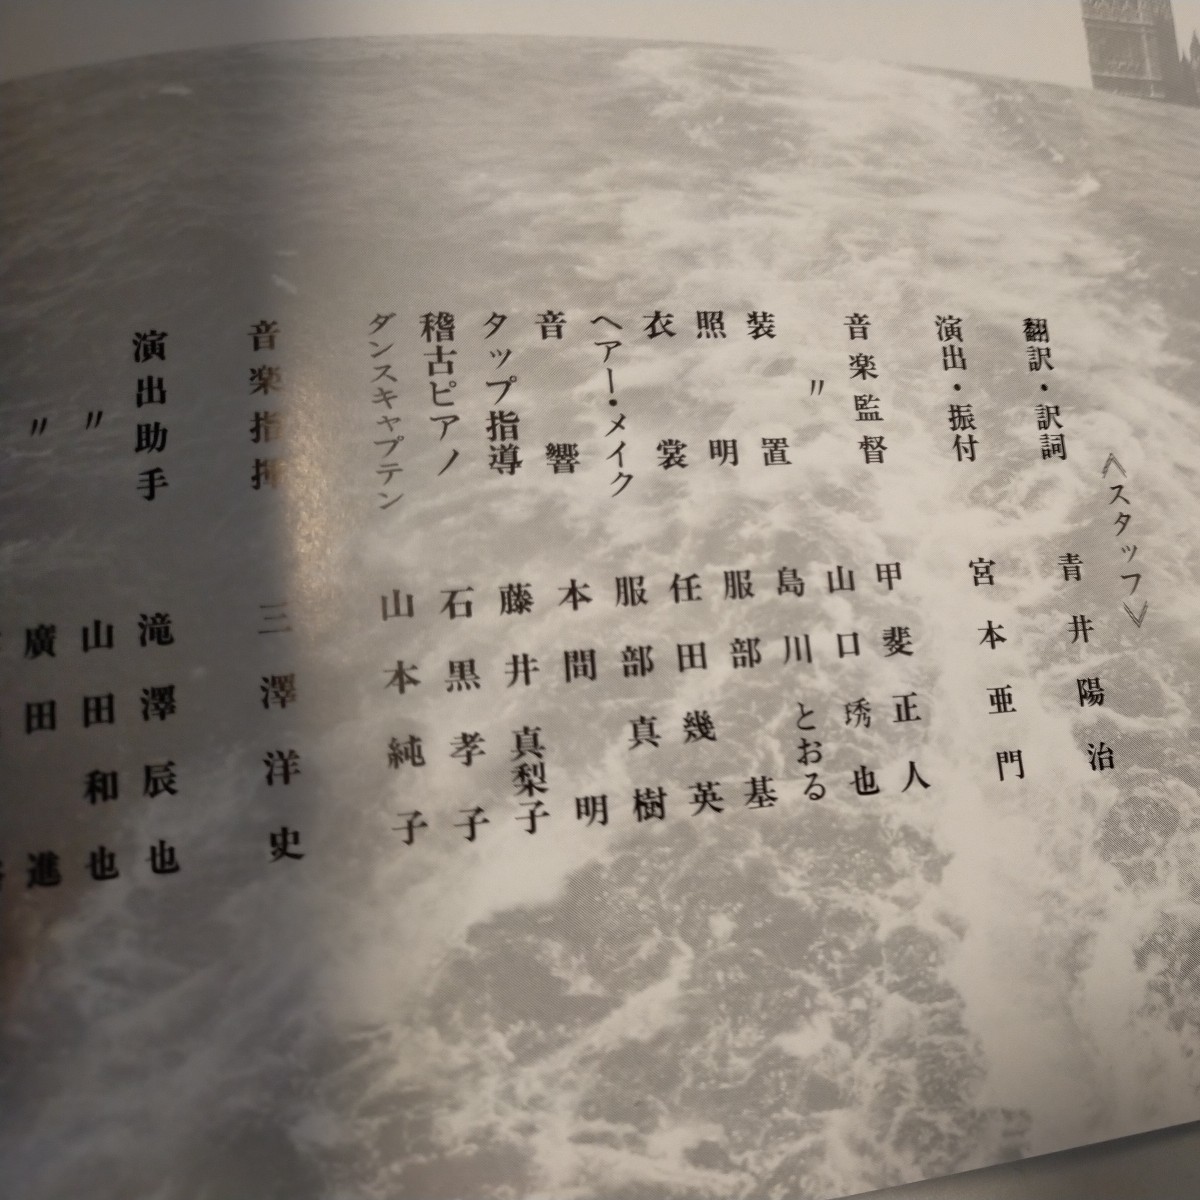 《スタッフ》
翻訳・訳詞 青井陽治
演出・振付 宮本亜門
音楽監督 甲斐正人
〃 山口琇也
装置 島川とおる
照明 服部基
衣裳 任田幾英
ヘアー・メイク 服部真樹
音響 本間明
タップ指導 藤井真梨子
稽古ピアノ 石黒孝子
ダンスキャプテン 山本純子
音楽指揮 三澤洋史
演出助手 滝澤辰也
〃 山田和也
〃 廣田進